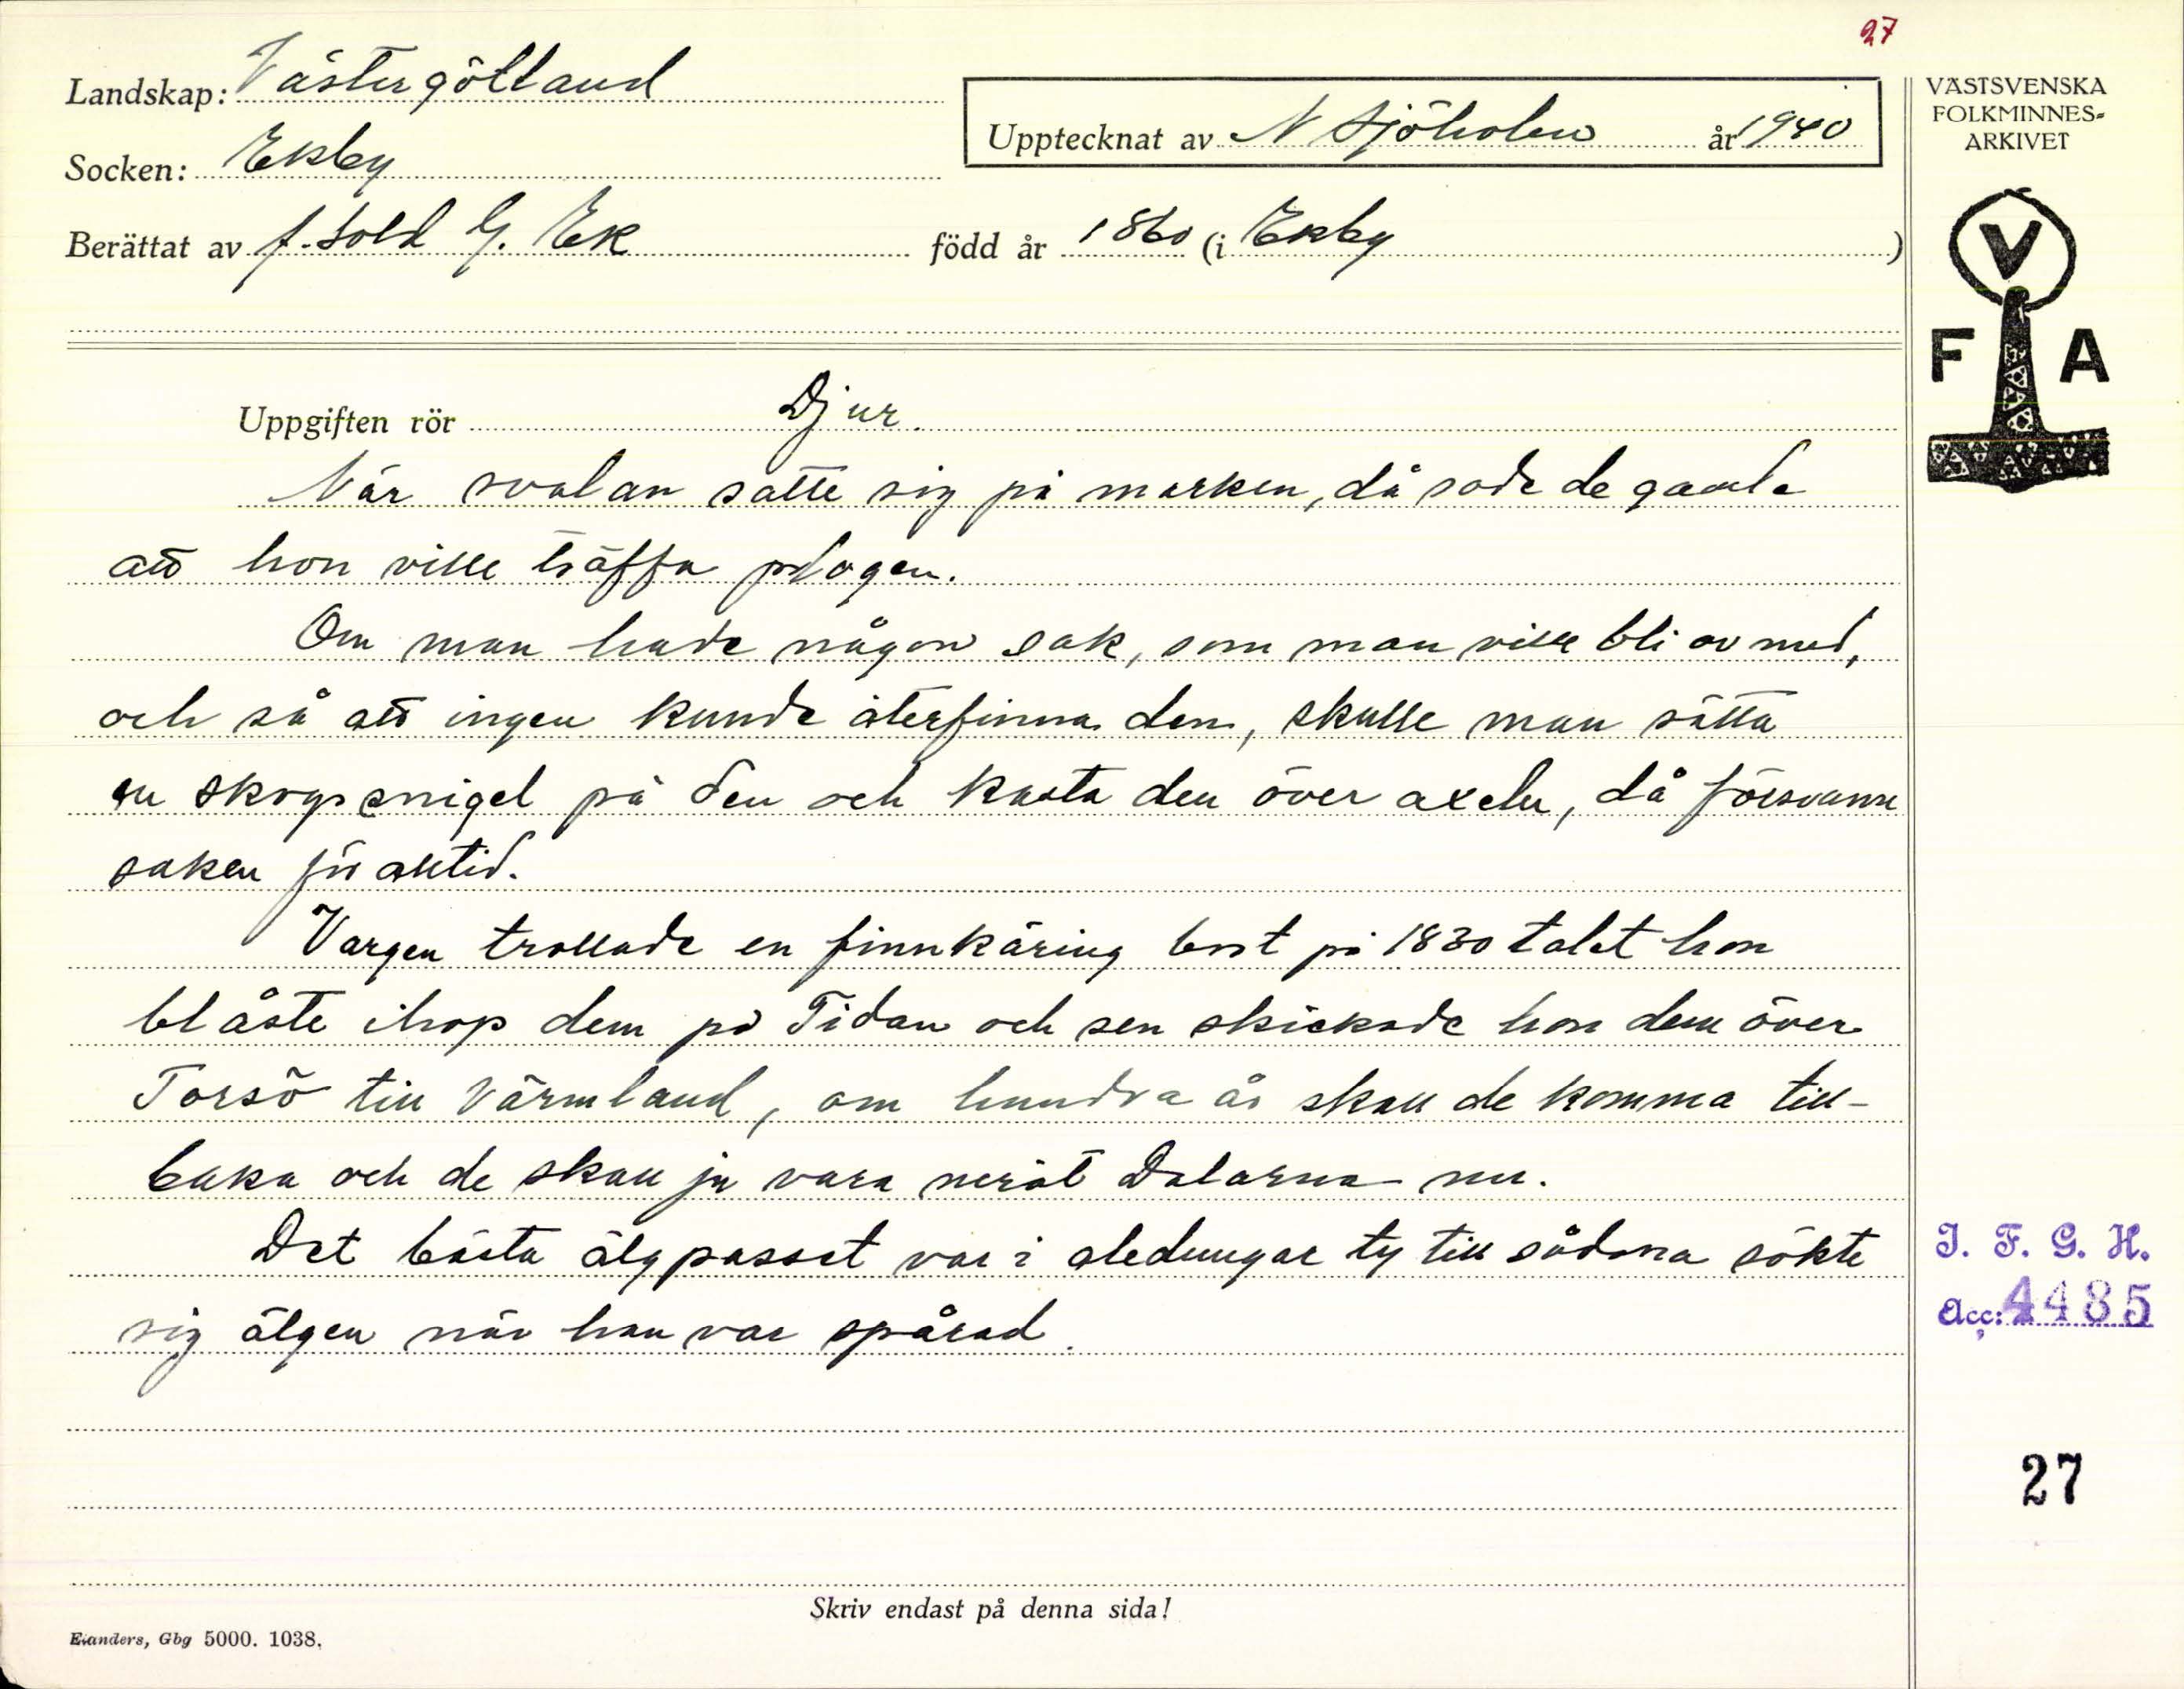 27
Landskap: Västergötland
Upptecknat av N Sjöholm år 1940
Socken: Ekby
Berättat av f. sold G. Ek född år 1860 (i Ekby)
VÄSTSVENSKA
FOLKMINNES-
ARKIVET
V
F A
Uppgiften rör Djur.
När svalan satte sig på marken, då sade de gamla
att hon ville träffa plogen.
Om man hade någon sak, som man ville bli av med,
och så att ingen kunde återfinna den, skulle man sätta
en skogssnigel på den och kasta den över axeln, då försvann
saken för alltid.
Vargen trollade en finnkäring bort på 1830 talet hon
blåste ihop dem på Tidan och sen skickade hon dem över
Torsö till Värmland, om hundra år skall de komma till-
baka och de skall ju vara neråt Dalarna nu.
Det bästa älgpasset var i aledungar ty till sådana sökte
sig älgen när han var spårad.
I. F. G. H.
Acc: 4485
27
Skriv endast på denna sida!
Elanders, Gbg 5000. 1038.